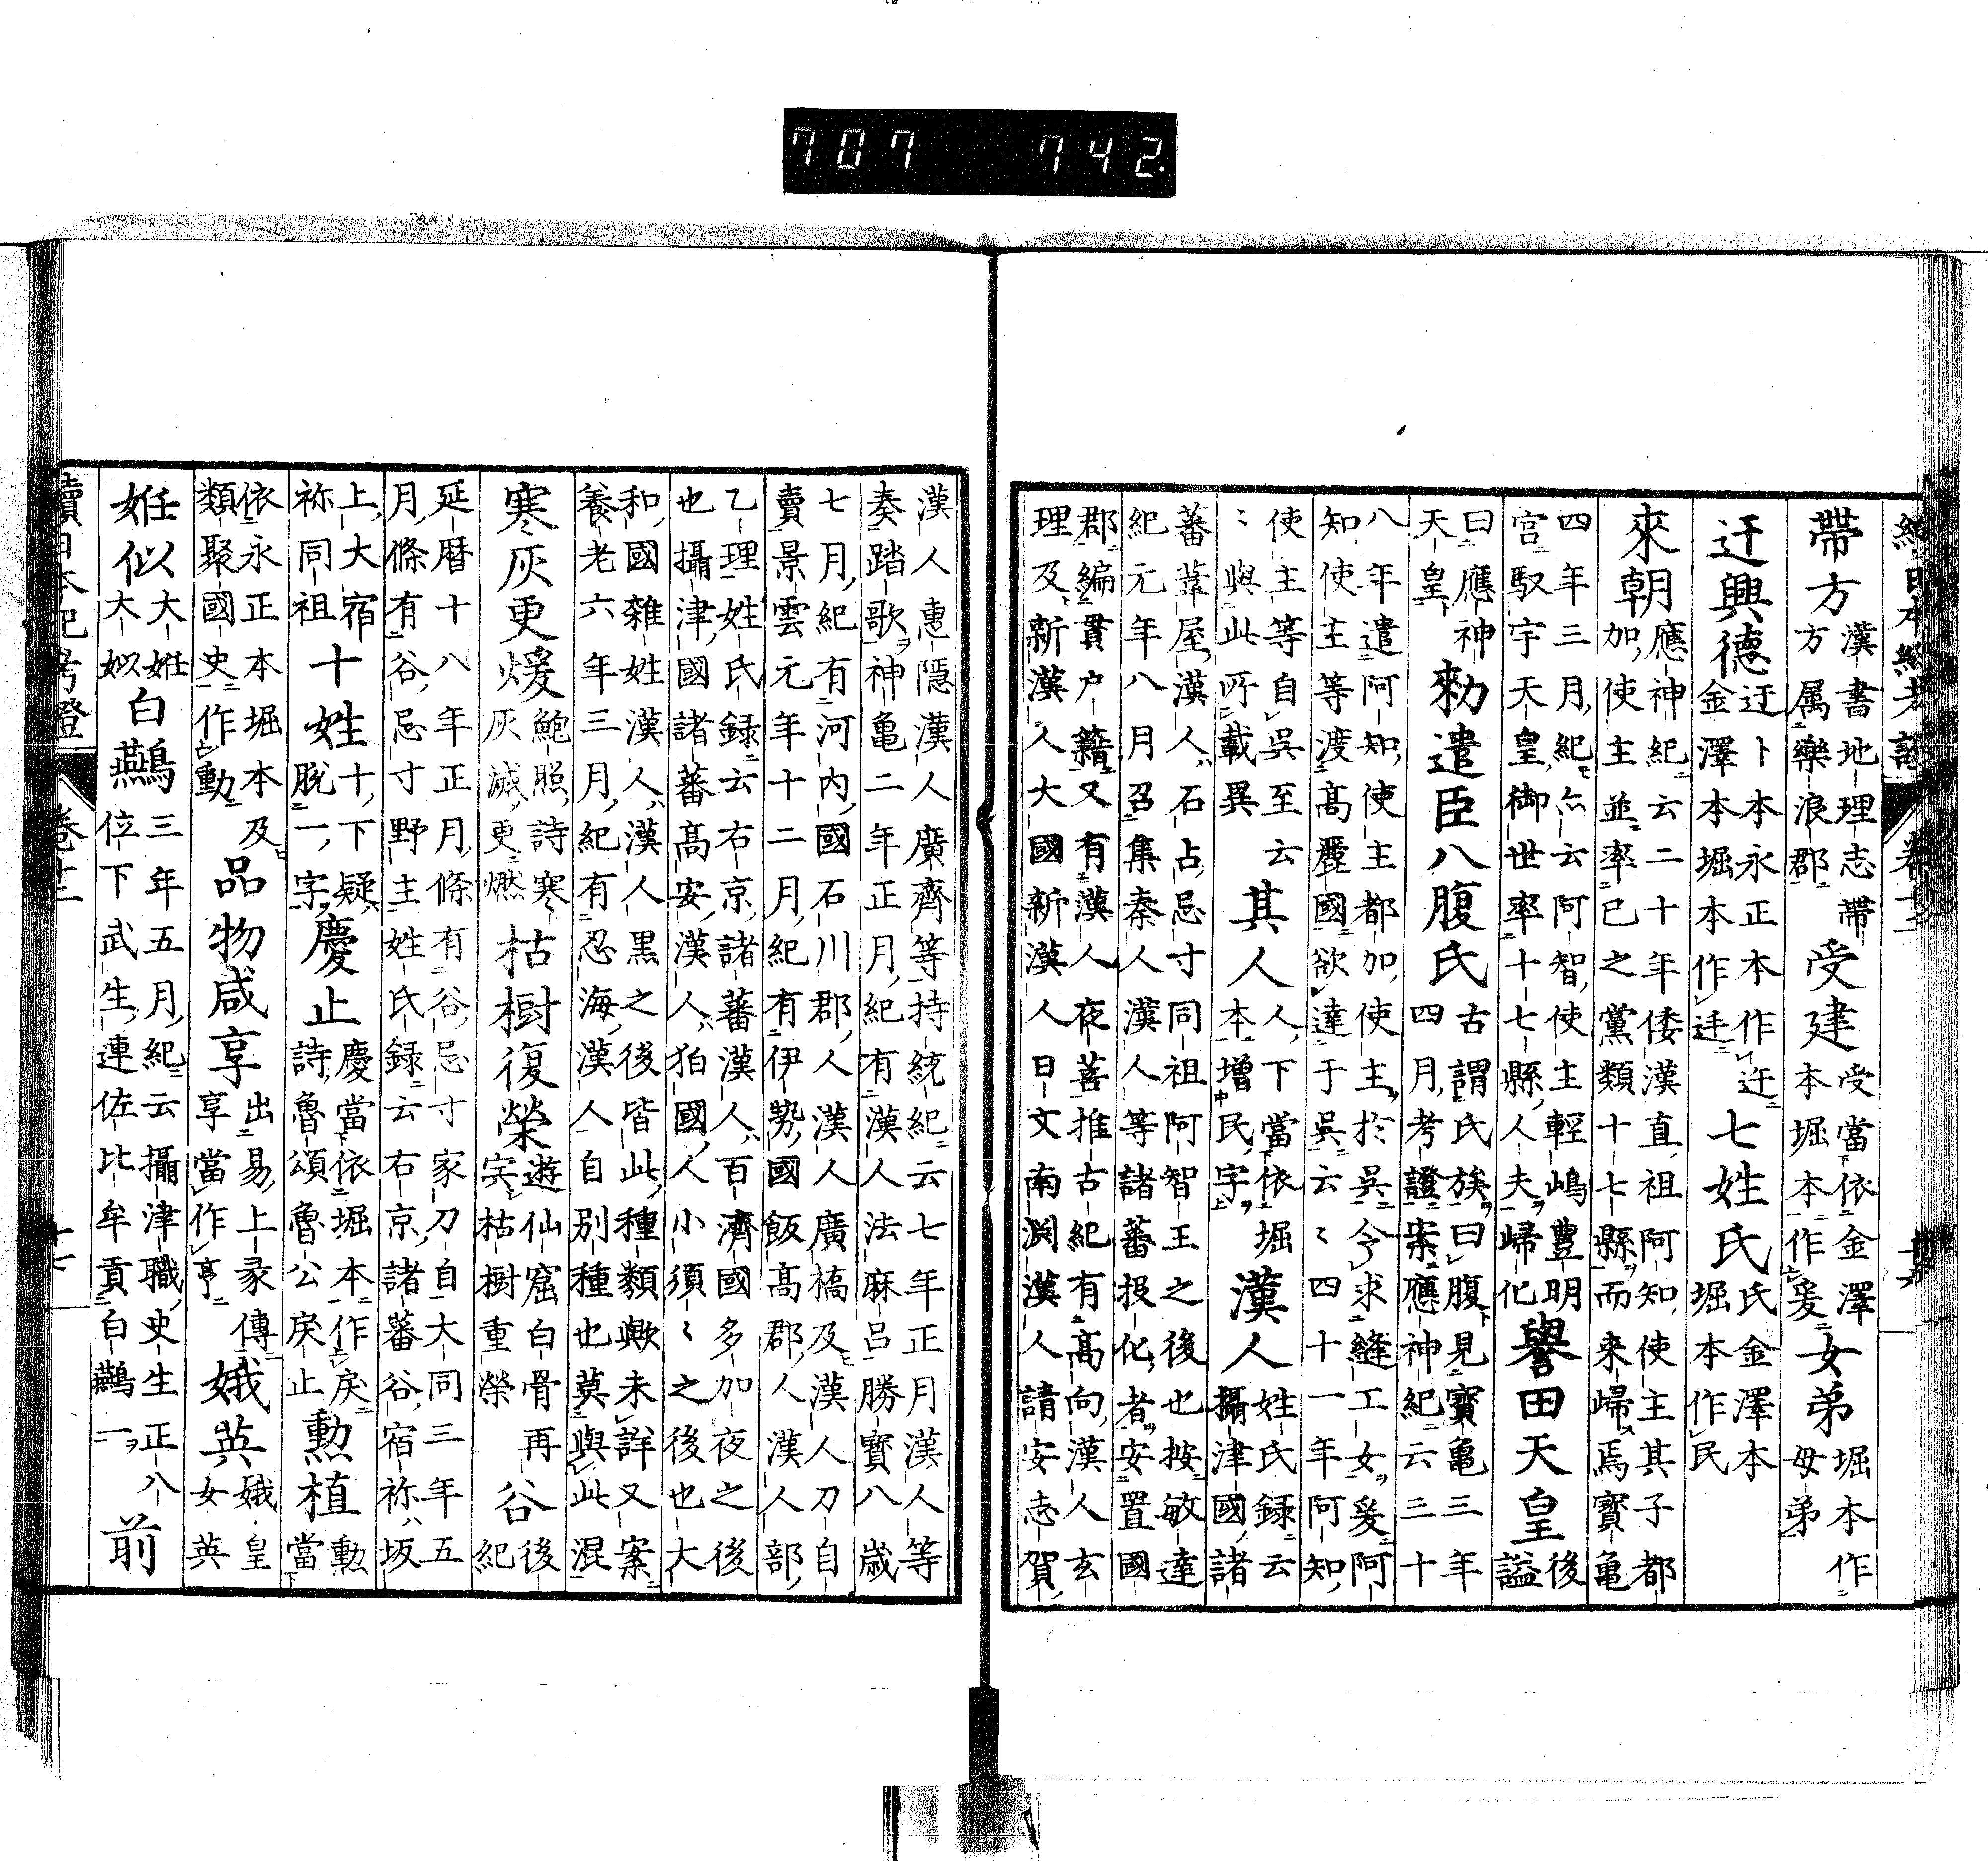 707 742
續日本紀考證 卷十二
帶方漢書地理志帶方屬樂浪郡受建受當依金澤本堀本作爰女弟堀本作母弟
迂興德迂卜本永正本作迂金澤本堀本作迋七姓氏氏金澤本堀本作民
來朝應神紀云二十年倭漢直祖阿知使主其子都加使主並率己之黨類十七縣而来歸焉寶龜
四年三月紀亦云阿智使主輕嶋豐明宮馭宇天皇御世率十七縣人夫歸化譽田天皇後謚
曰應神天皇勑遣臣八腹氏古謂氏族曰腹見寶亀三年四月考證案應神紀云三十
八年遣阿知使主都加使主於吳令求縫工女爰阿知使主等渡高麗國欲達于吳云〻四十一年阿知
使主等自吳至云〻與此所載異其人人下當依堀本增民字漢人姓氏録云攝津國諸
蕃葦屋漢人石占忌寸同祖阿智王之後也按敏達紀元年八月召集秦人漢人等諸蕃投化者安置國
郡編貫户籍又有漢人夜菩推古紀有高向漢人玄理及新漢人大國新漢人日文南渕漢人請安志賀
漢人惠隱漢人廣齊等持統紀云七年正月漢人等奏踏歌神亀二年正月紀有漢人法麻呂勝寶八歲
七月紀有河内國石川郡人漢人廣橋及漢人刀自賣景雲元年十二月紀有伊勢國飯高郡人漢人部
乙理姓氏録云右京諸蕃漢人百濟國多加夜之後也攝津國諸蕃高安漢人狛國人小須〻之後也大
和國雜姓漢人漢人黒之後皆此種類歟未詳又案養老六年三月紀有忍海漢人自別種也莫與此混
寒灰更煖鮑照詩寒灰滅更燃枯樹復榮遊仙窟白骨再宍枯樹重榮谷後紀
延暦十八年正月條有谷忌寸家刀自大同三年五月條有谷忌寸野主姓氏録云右京諸蕃谷宿祢坂
上大宿祢同祖十姓十下疑脫一字慶止慶當依堀本作戾詩魯頌魯公戾止勲植勲當
依永正本堀本及類聚國史作動品物咸享出易上彖傳享當作亨娥英娥皇女英
姙似以大姙大姒白鷰三年五月紀云攝津職史生正八位下武生連佐比牟貢白鷰一前
續日本紀考證 卷十二 十七